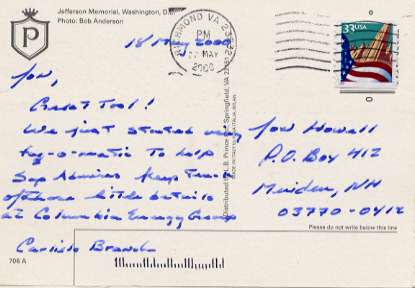 Jefferson Memorial, Washington, D.C.
Photo: Bob Anderson
P
RICHMOND VA 232
PM
MAY
2000
33USA
18 May 2000
Jon,
Great Tool!
We just started using
to help
keep track
of those little details
at Columbia Energy Group
Carlisle Branch
Jon Howell
P.O. Box 412
Meriden, NH
03770-0412
Distributed by L.B. Prince Springfield, VA
Please do not write below this line
706 A